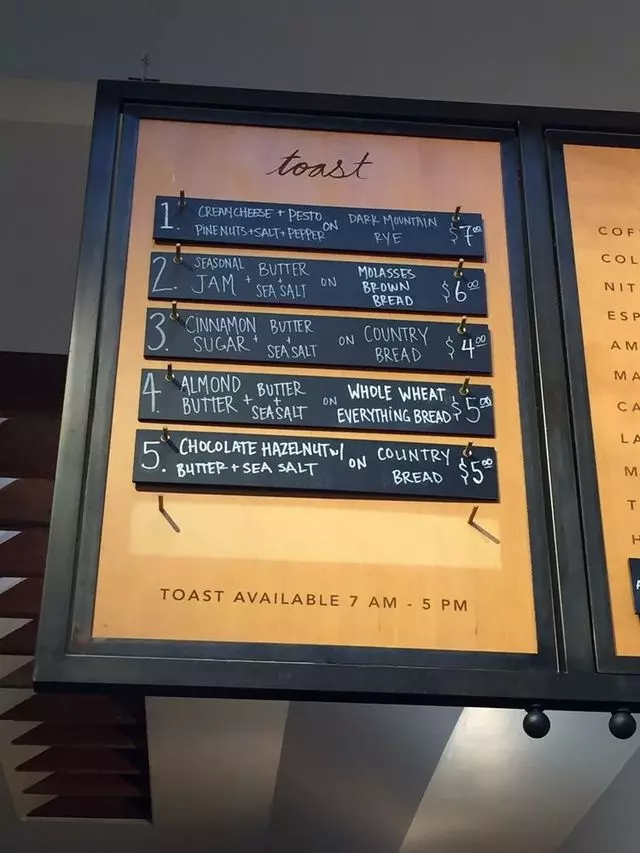 toast
1. CREAM CHEESE + PESTO ON DARK MOUNTAIN $7.00
PINENUTS + SALT + PEPPER RYE
2. SEASONAL BUTTER MOLASSES
JAM + + ON BROWN $6.00
SEA SALT BREAD
3. CINNAMON BUTTER ON COUNTRY $4.00
SUGAR + + SEA SALT BREAD
4. ALMOND BUTTER WHOLE WHEAT
BUTTER + + SEA SALT ON EVERYTHING BREAD $5.00
5. CHOCOLATE HAZELNUT w/ ON COUNTRY $5.00
BUTTER + SEA SALT BREAD
TOAST AVAILABLE 7 AM - 5 PM